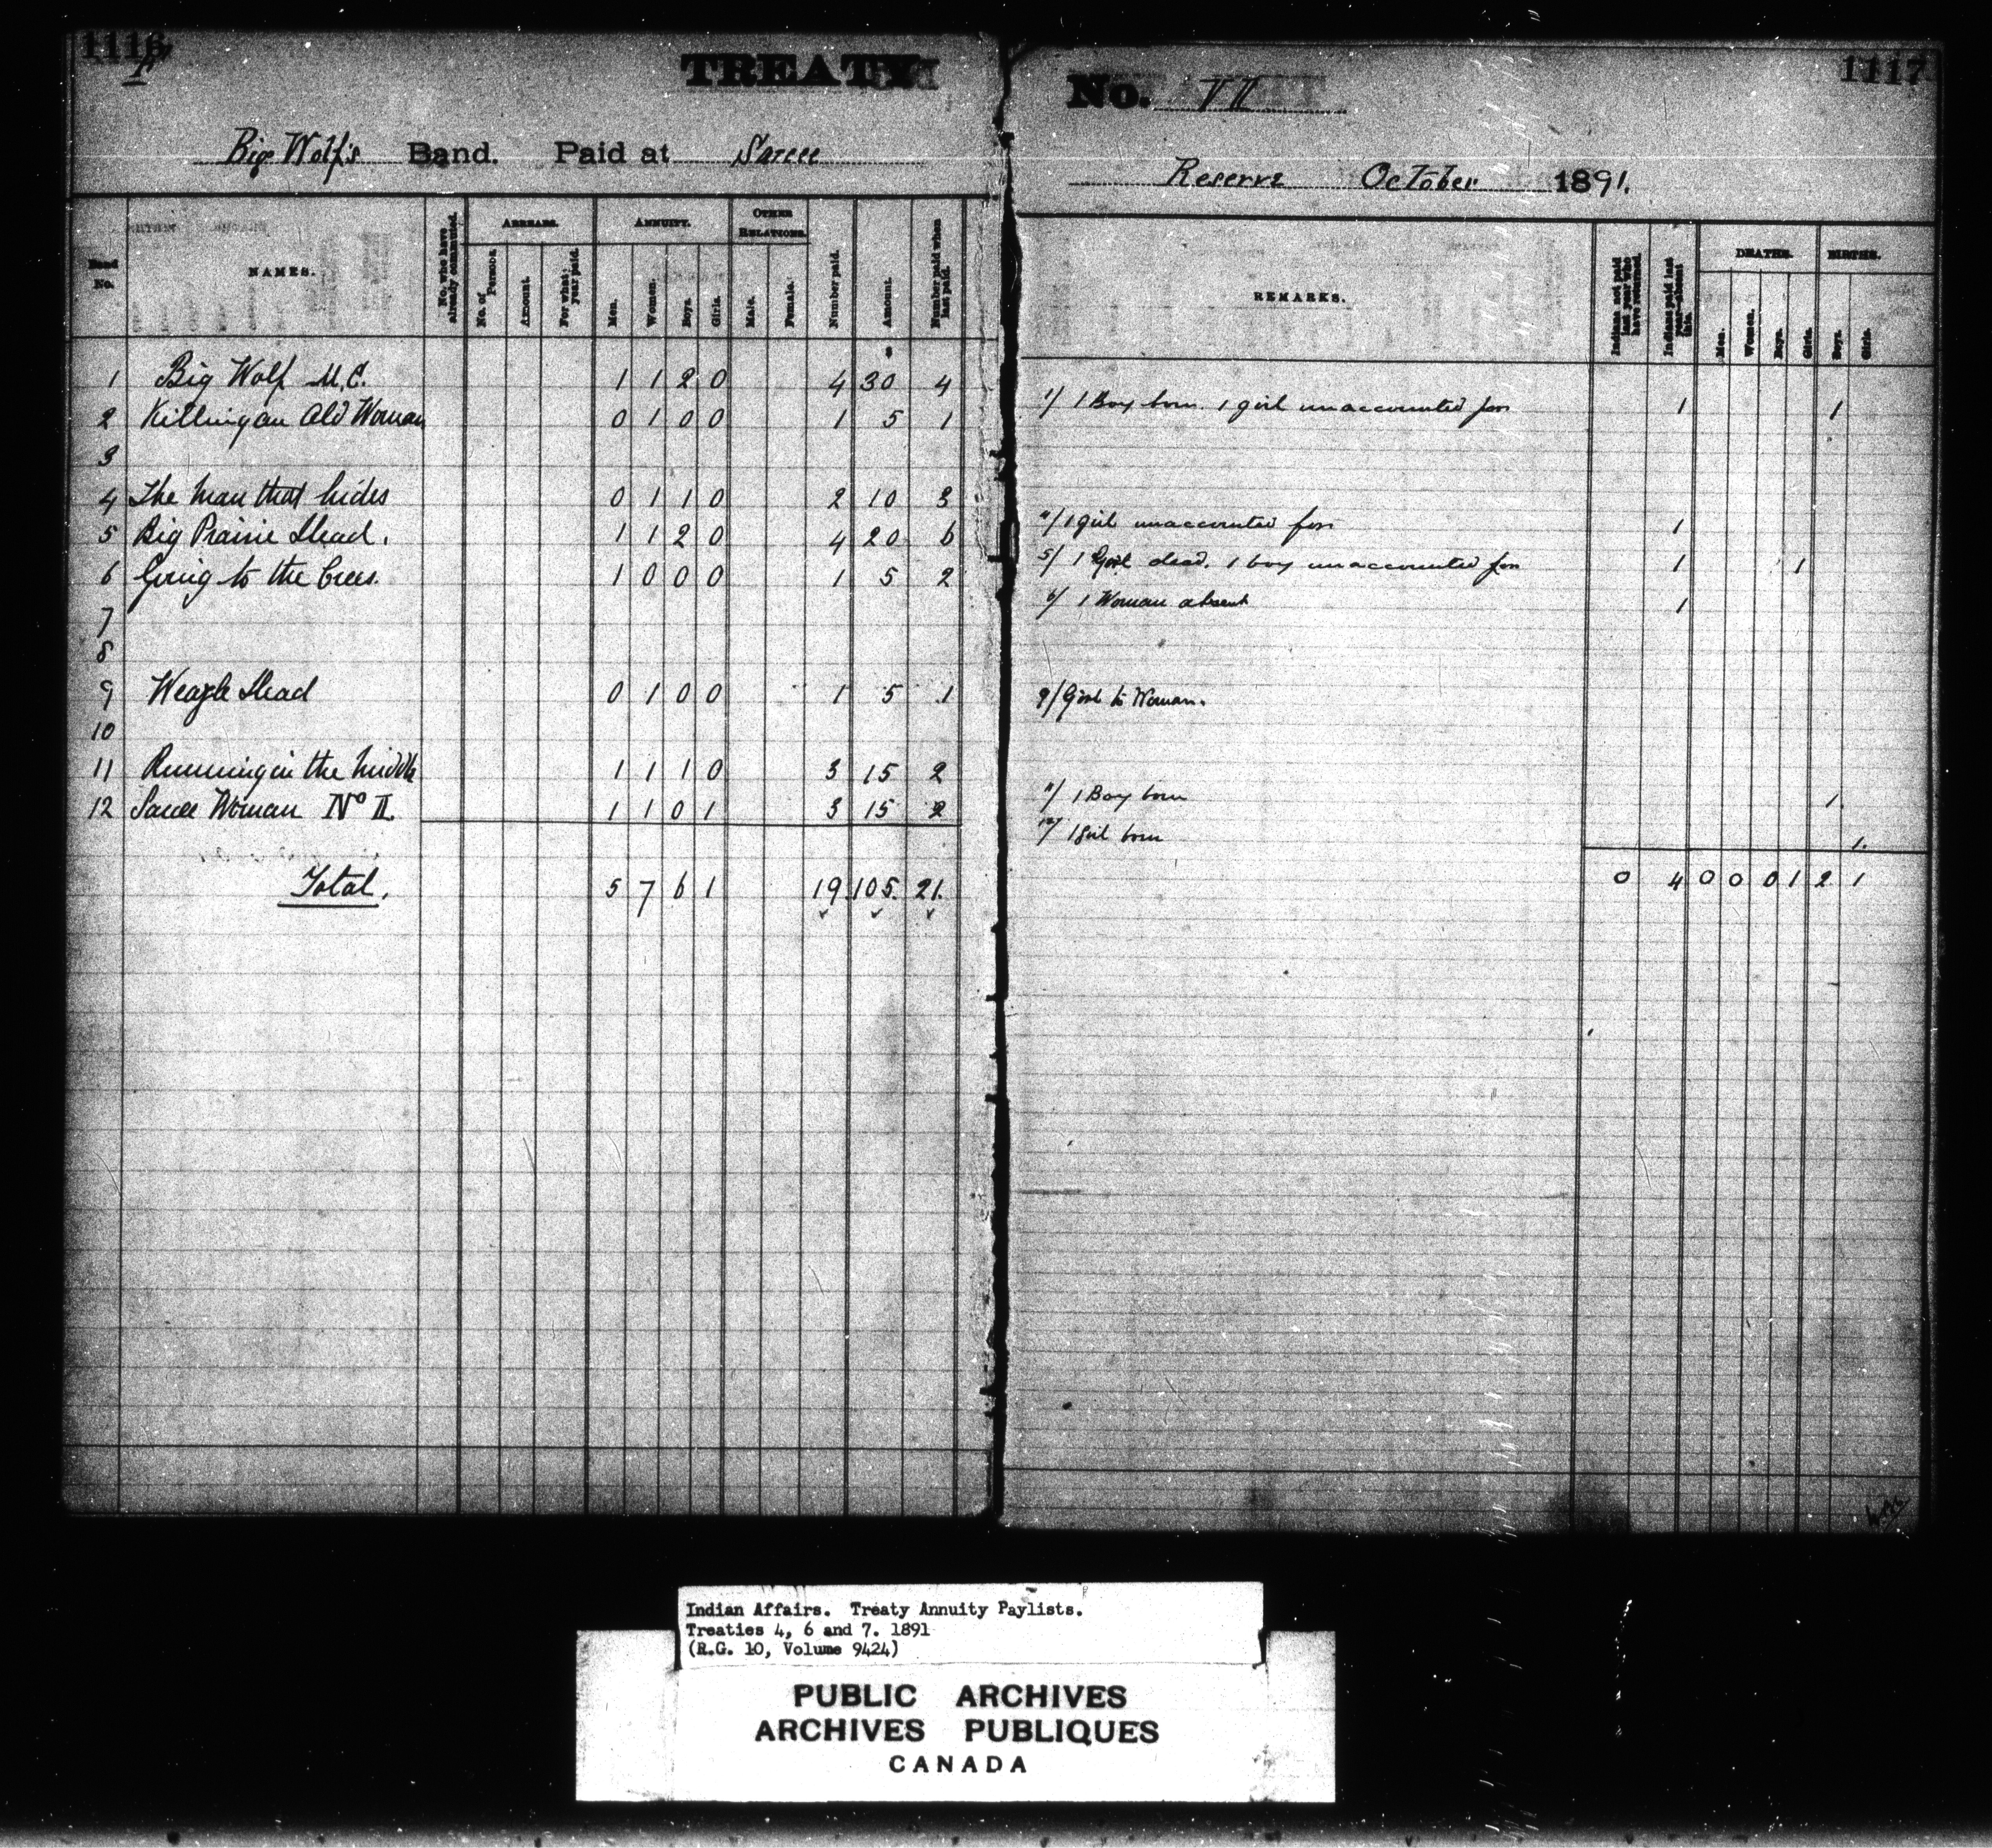 1116
1117
TREATY
No. VII
Big Wolf's Band. Paid at Sarcee
Reserve October 1891.
Band No.
NAMES.
No. who have already commuted.
ARREARS.
No. of Persons.
Amount.
For what year paid.
ANNUITY.
Men.
Women.
Boys.
Girls.
OTHER RELATIONS.
Male.
Female.
Number paid.
Amount.
Number paid when last paid.
REMARKS.
Indians not paid last year who have returned.
Indians paid last year—absent this.
DEATHS.
Men.
Women.
Boys.
Girls.
BIRTHS.
Boys.
Girls.
1 Big Wolf M.C. 1 1 2 0 4 30 4 1/ 1 Boy born. 1 girl unaccounted for 1 1
2 Killing an Old Woman 0 1 0 0 1 5 1
3
4 The Man that hides 0 1 1 0 2 10 3 4/ 1 girl unaccounted for 1
5 Big Prairie Head. 1 1 2 0 4 20 6 5/ 1 Girl dead. 1 boy unaccounted for 1 1
6 Going to the Crees. 1 0 0 0 1 5 2 6/ 1 Woman absent 1
7
8
9 Weazle Head 0 1 0 0 1 5 1 9/ Girl to Woman.
10
11 Running in the middle 1 1 1 0 3 15 2 11/ 1 Boy born 1.
12 Sarcee Woman No II. 1 1 0 1 3 15 2 12/ 1 Girl born 1.
Total. 5 7 6 1 19. 105. 21. 0 4 0 0 0 1 2 1
Indian Affairs. Treaty Annuity Paylists.
Treaties 4, 6 and 7. 1891
(R.G. 10, Volume 9424)
PUBLIC ARCHIVES
ARCHIVES PUBLIQUES
CANADA